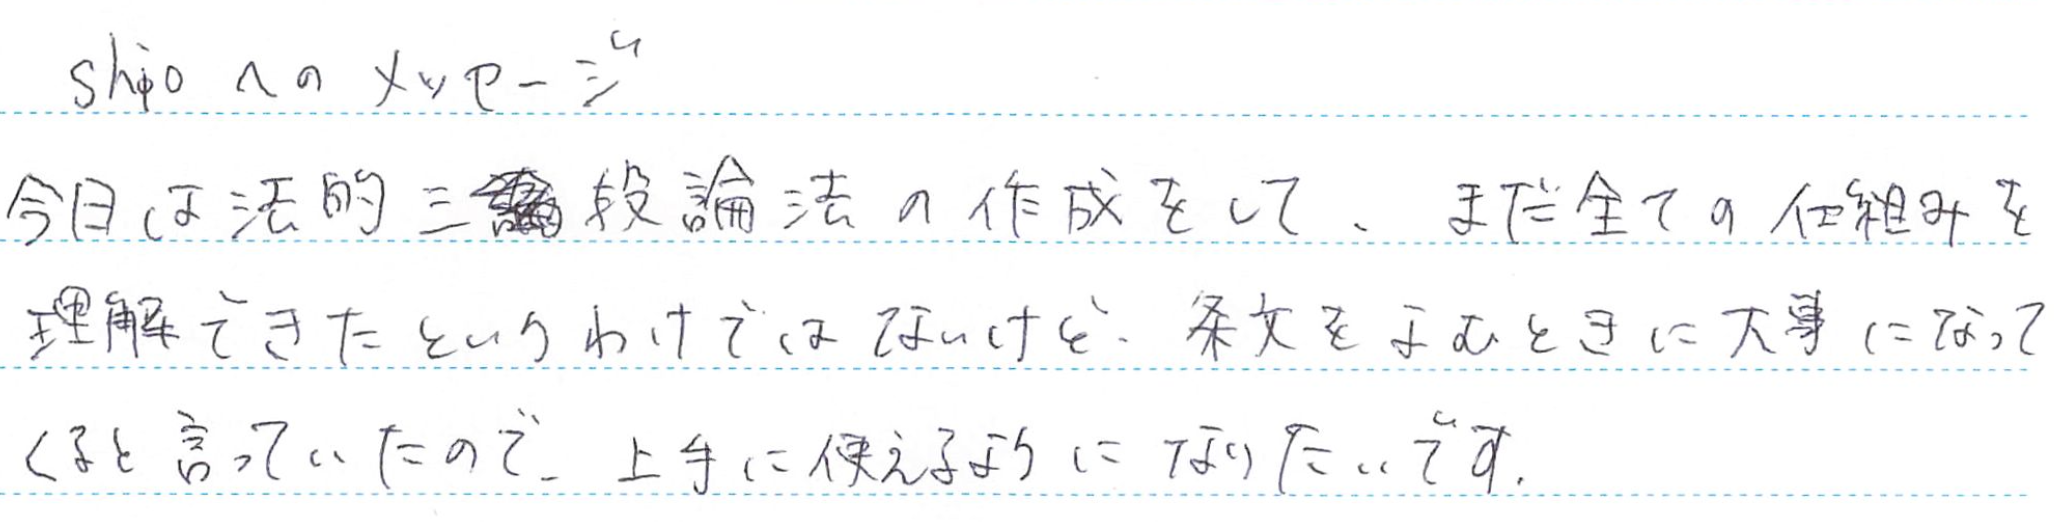 shioへのメッセージ
今日は法的三段論法の作成をして、まだ全ての仕組みを
理解できたというわけではないけど、条文をよむときに大事になって
くると言っていたので、上手に使えるようになりたいです。